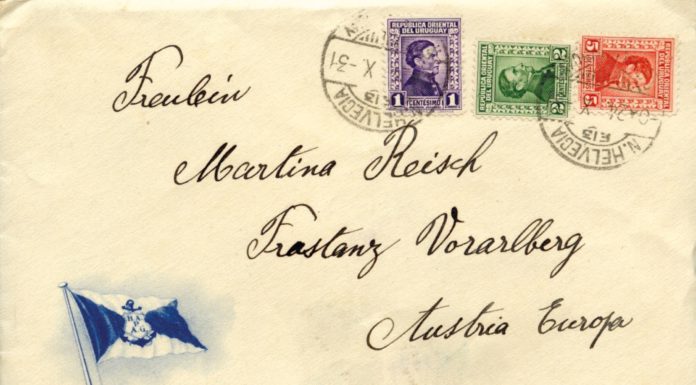 REPÚBLICA ORIENTAL
DEL URUGUAY
1 CENTESIMO 1
REPÚBLICA ORIENTAL
DEL URUGUAY
2 2
REPÚBLICA ORIENTAL
DEL URUGUAY
5 5
X - 31
N. HELVECIA
N. HELVECIA
Freulein
Martina Reisch
Frastanz Vorarlberg
Austria Europa
H A
P
A G